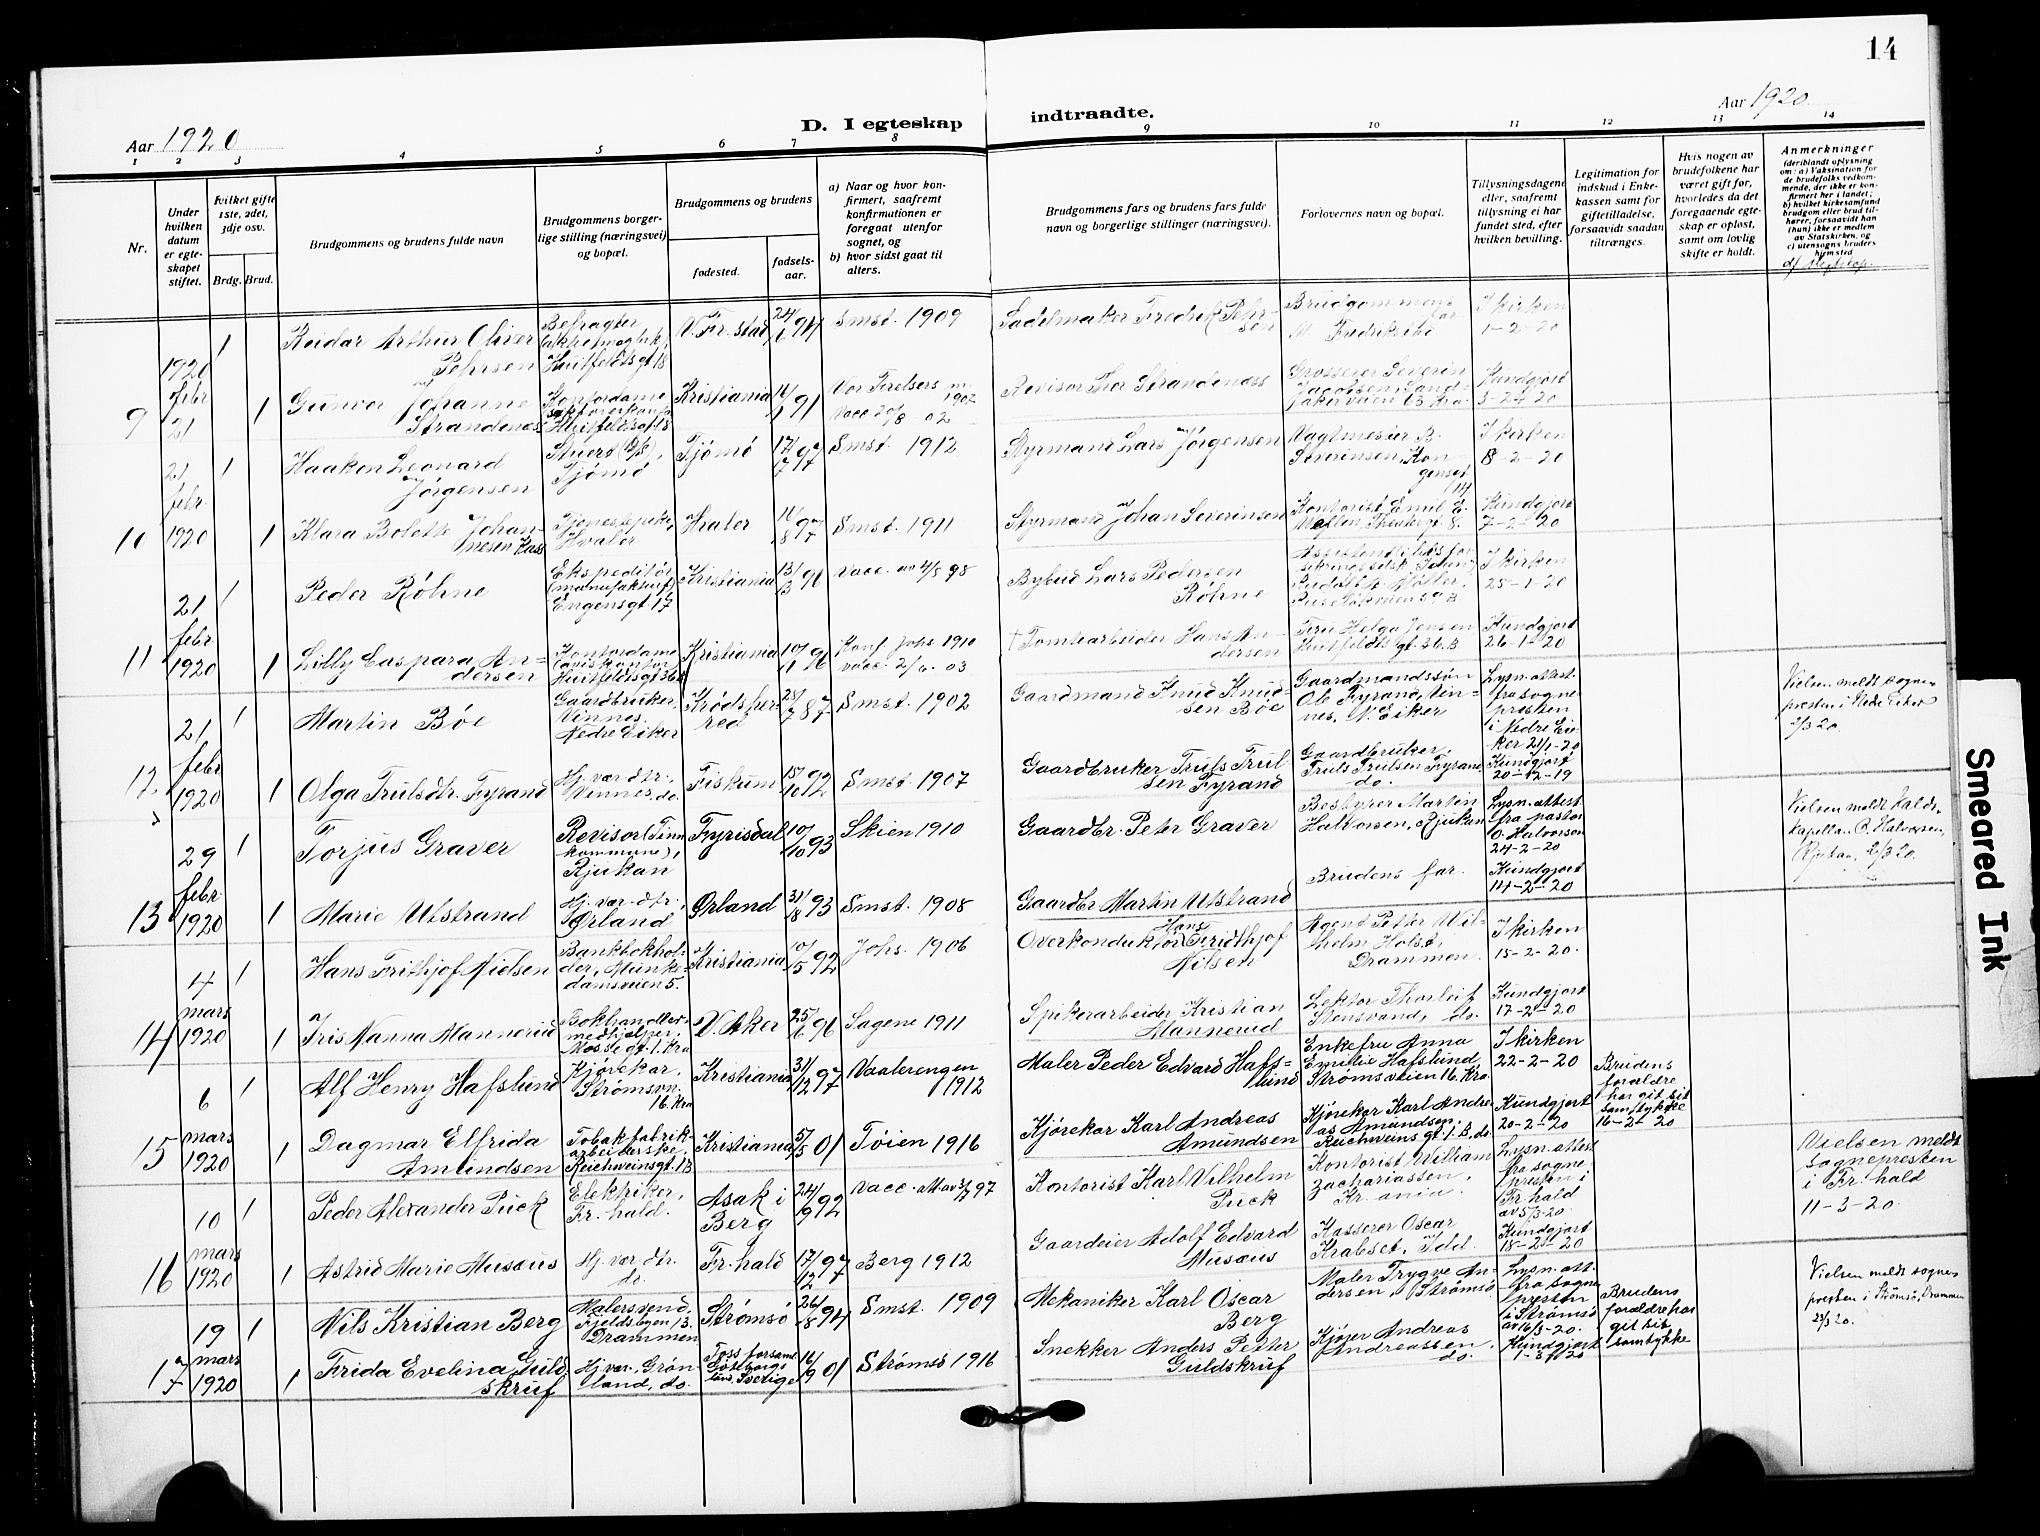 14
Aar 1920
D. I egteskap indtraadte.
Aar 1920
1 2 3 4 5 6 7 8 9 10 11 12 13 14
Nr.
Under hvilken datum er egteskapet stiftet.
Hvilket gifte 1ste, 2det, 3dje osv.
Brdg. Brud.
Brudgommens og brudens fulde navn
Brudgommens borgerlige stilling (næringsvei) og bopæl.
Brudgommens og brudens
fødested.
fødselsaar.
a) Naar og hvor konfirmert, saafremt konfirmationen er foregaat utenfor sognet, og
b) hvor sidst gaat til alters.
Brudgommens fars og brudens fars fulde navn og borgerlige stillinger (næringsvei).
Forlovernes navn og bopæl.
Tillysningsdagene eller, saafremt tillysning ei har fundet sted, efter hvilken bevilling.
Legitimation for indskud i Enkekassen samt for giftetilladelse, forsaavidt saadan tiltrænges.
Hvis nogen av brudefolkene har været gift før, hvorledes da det foregaaende egteskap er opløst, samt om lovlig skifte er holdt.
Anmerkninger
(deriblandt oplysning om: a) Vaksination for de brudefolks vedkommende, der ikke er konfirmert her i landet; b) hvilket kirkesamfund brudgom eller brud tilhører, forsaavidt han (hun) ikke er medlem av Statskirken, og c) utensogns bruders hjemsted
9
21 febr. 1920
1
Reidar Arthur Oliver Pehrsen
Befragter
Huitfeldtsgt. 18
V. Fr.stad
24/6 94
Smst. 1909
Sadelmaker Fredrik Pehrsen
Brudgommens far
Fredrikstad
I kirken
1-2-20
1
Gunvor Johanne Strandenæs
Kontordame
Huitfeldtsgt. 18
Kristiania
91
Vor Frelsers
1907
vacc. 20/8 - 02
Revisor Thor Strandenæss
Grosserer Severin Jacobsen,
63 Kra.
Kundgjort
3-24 20
10
21 febr. 1920
1
Haaken Leonard Jørgensen
Stuert (D/S),
Tjømø
Tjømø
17/7 97
Smst. 1912
Styrmand Lars Jørgensen
Vagtmester B. Severinsen, Kongensgt. 14
I kirken
8-2-20
1
Klara Bolette Johannesen Kass
Tjenestepike,
Hvaler
Hvaler
11/8 97
Smst. 1911
Styrmand Johan Severinsen
Kontorist Emil E.
Kundgjort
7-2-20
11
21 febr. 1920
1
Peder Röhne
Ekspeditør
(manufaktur),
Engensgt. 17
Kristiania
13/3 96
Vacc. av 4/5 98
Bybud Lars Pedersen Röhne
I kirken
25-1-20
1
Lilly Caspara Andersen
Kontordame
(aviskontor)
Huitfeldtsgt. 36 B
Kristiania
10/1 96
Konf. Johs. 1910
vacc. 2/6. 03
† Tomtearbeider Hans Andersen
Fru Helga Jensen
Huitfeldts gt. 36. B
Kundgjort
26-1-20
12
21 febr 1920
1
Martin Bøe
Gaardbruker,
Vinnes,
Nedre Eiker
Krødsherred
28/7 87
Smst. 1902
Gaardmand Knud Knudsen Bøe
Gaardmandssøn
Ole Fyrand, Vinnes, N. Eiker
Lysn. attest.
fra sognepresten
i Nedre Eiker 21/1-20
Vielsen meldt sognepresten i Nedre Eiker
2/3 20.
1
Olga Trulsdtr. Fyrand
Hj. vær. dtr.,
Vinnes, do.
Fiskum
15/10 92
Smst. 1907
Gaardbruker Truls Trulsen Fyrand
Gaardbruker.
Truls Trulsen Fyrand, do.
Kundgjort
20-12-19
13
29 febr. 1920
1
Torjus Graver
Revisor (Tinn
kommune),
Rjukan
Fyrisdal
10/10 93
Skien 1910
Gaardbr. Peter Graver
Bestyrer Martin
Halvorsen, Rjukan
Lysn. attest.
fra pastor
O. Halvorsen
24-2-20
Vielsen meldt kald.
kapellan O. Halvorsen,
Rjukan, 2/3 20.
1
Marie Utstrand
Hj. vær. dtr.,
Ørland
Ørland
31/8 93
Smst. 1908
Gaardbr Martin Utstrand
Brudens far.
Kundgjort
14-2-20
14
4 mars 1920
1
Hans Frithjof Nielsen
Bankbokholder, Munkedamsveien 5.
Kristiania
10/5 92
Johs. 1906
Overkonduktør Hans Fridthjof Nilsen
Agent Peter Wilhelm Holst,
Drammen.
I kirken
15-2-20.
1
Iris Nanna Mannerud
Bokhandlermedhjælper,
Mosse gt. 1. Kra
V. Aker
25/6 96
Sagene 1911
Spikerarbeider Kristian Mannerud
Lektor Thorleif
Stensvand, do.
Kundgjort
17-2-20
15
6 mars 1920
1
Alf Henry Hafslund
Kjørekar,
Strømsvn. 16. Kra
Kristiania
31/12 97
Vaalerengen 1912
Maler Peder Edvard Hafslund
Enkefru Anna
Emilie Hafslund
Strømsveien 16. Kra.
I kirken
22-2-20
Brudens
forældre
har git sit
samtykke
16-2-20
1
Dagmar Elfrida Amundsen
Tobakfabrikarbeiderske,
Reichweinsgt. 1 B
Kristiania
5/5 01
Tøien 1916
Kjørekar Karl Andreas Amundsen
Kjørekar Karl Andreas Amundsen,
Reichweins gt. 1. B, do.
Kundgjort
20-2-20
16
10 mars 1920
1
Peder Alexander Puck
Elektriker,
Fr. hald.
Asak i Berg
24/9 92
Vacc. 97
Kontorist Karl Vilhelm Puck
Kontorist William
Zachariassen,
Kr.ania
Lysn. attest
fra sognepresten i
Fr. hald
av 5/3-20.
Vielsen meldt
sognepresten
i Fr. hald
11-3-20.
1
Astrid Marie Musæus
Hj. vær. dtr.
do.
Fr. hald
17/12 97
Berg 1912
Gaardeier Adolf Edvard Musæus
Kasserer Oscar
Krabset, Idd
Kundgjort
18-2-20
17
19 mars 1920
1
Nils Kristian Berg
Malersvend,
Fjeldsbyen 13.
Drammen
Strømsø
26/8 94
Smst. 1909
Mekaniker Karl Oscar Berg
Maler Trygve Andersen, Strømsø
Lysn. att.
fra sognepresten
i Strømsø
av 16/3-20.
Brudens
forældre har
git sit
samtykke
Vielsen meldt sognepresten i Strømsø, Drammen
1
Frida Evelina Guldskruf
Hj. vær. Grønland, do.
Foss forsaml.
Göteborgs
län, Sverige
16/9 01
Strømsø 1916
Snekker Anders Petter Guldskruf
Kjører Andreas
Andreassen, do.
Kundgjort
1-3-20
Smeared Ink